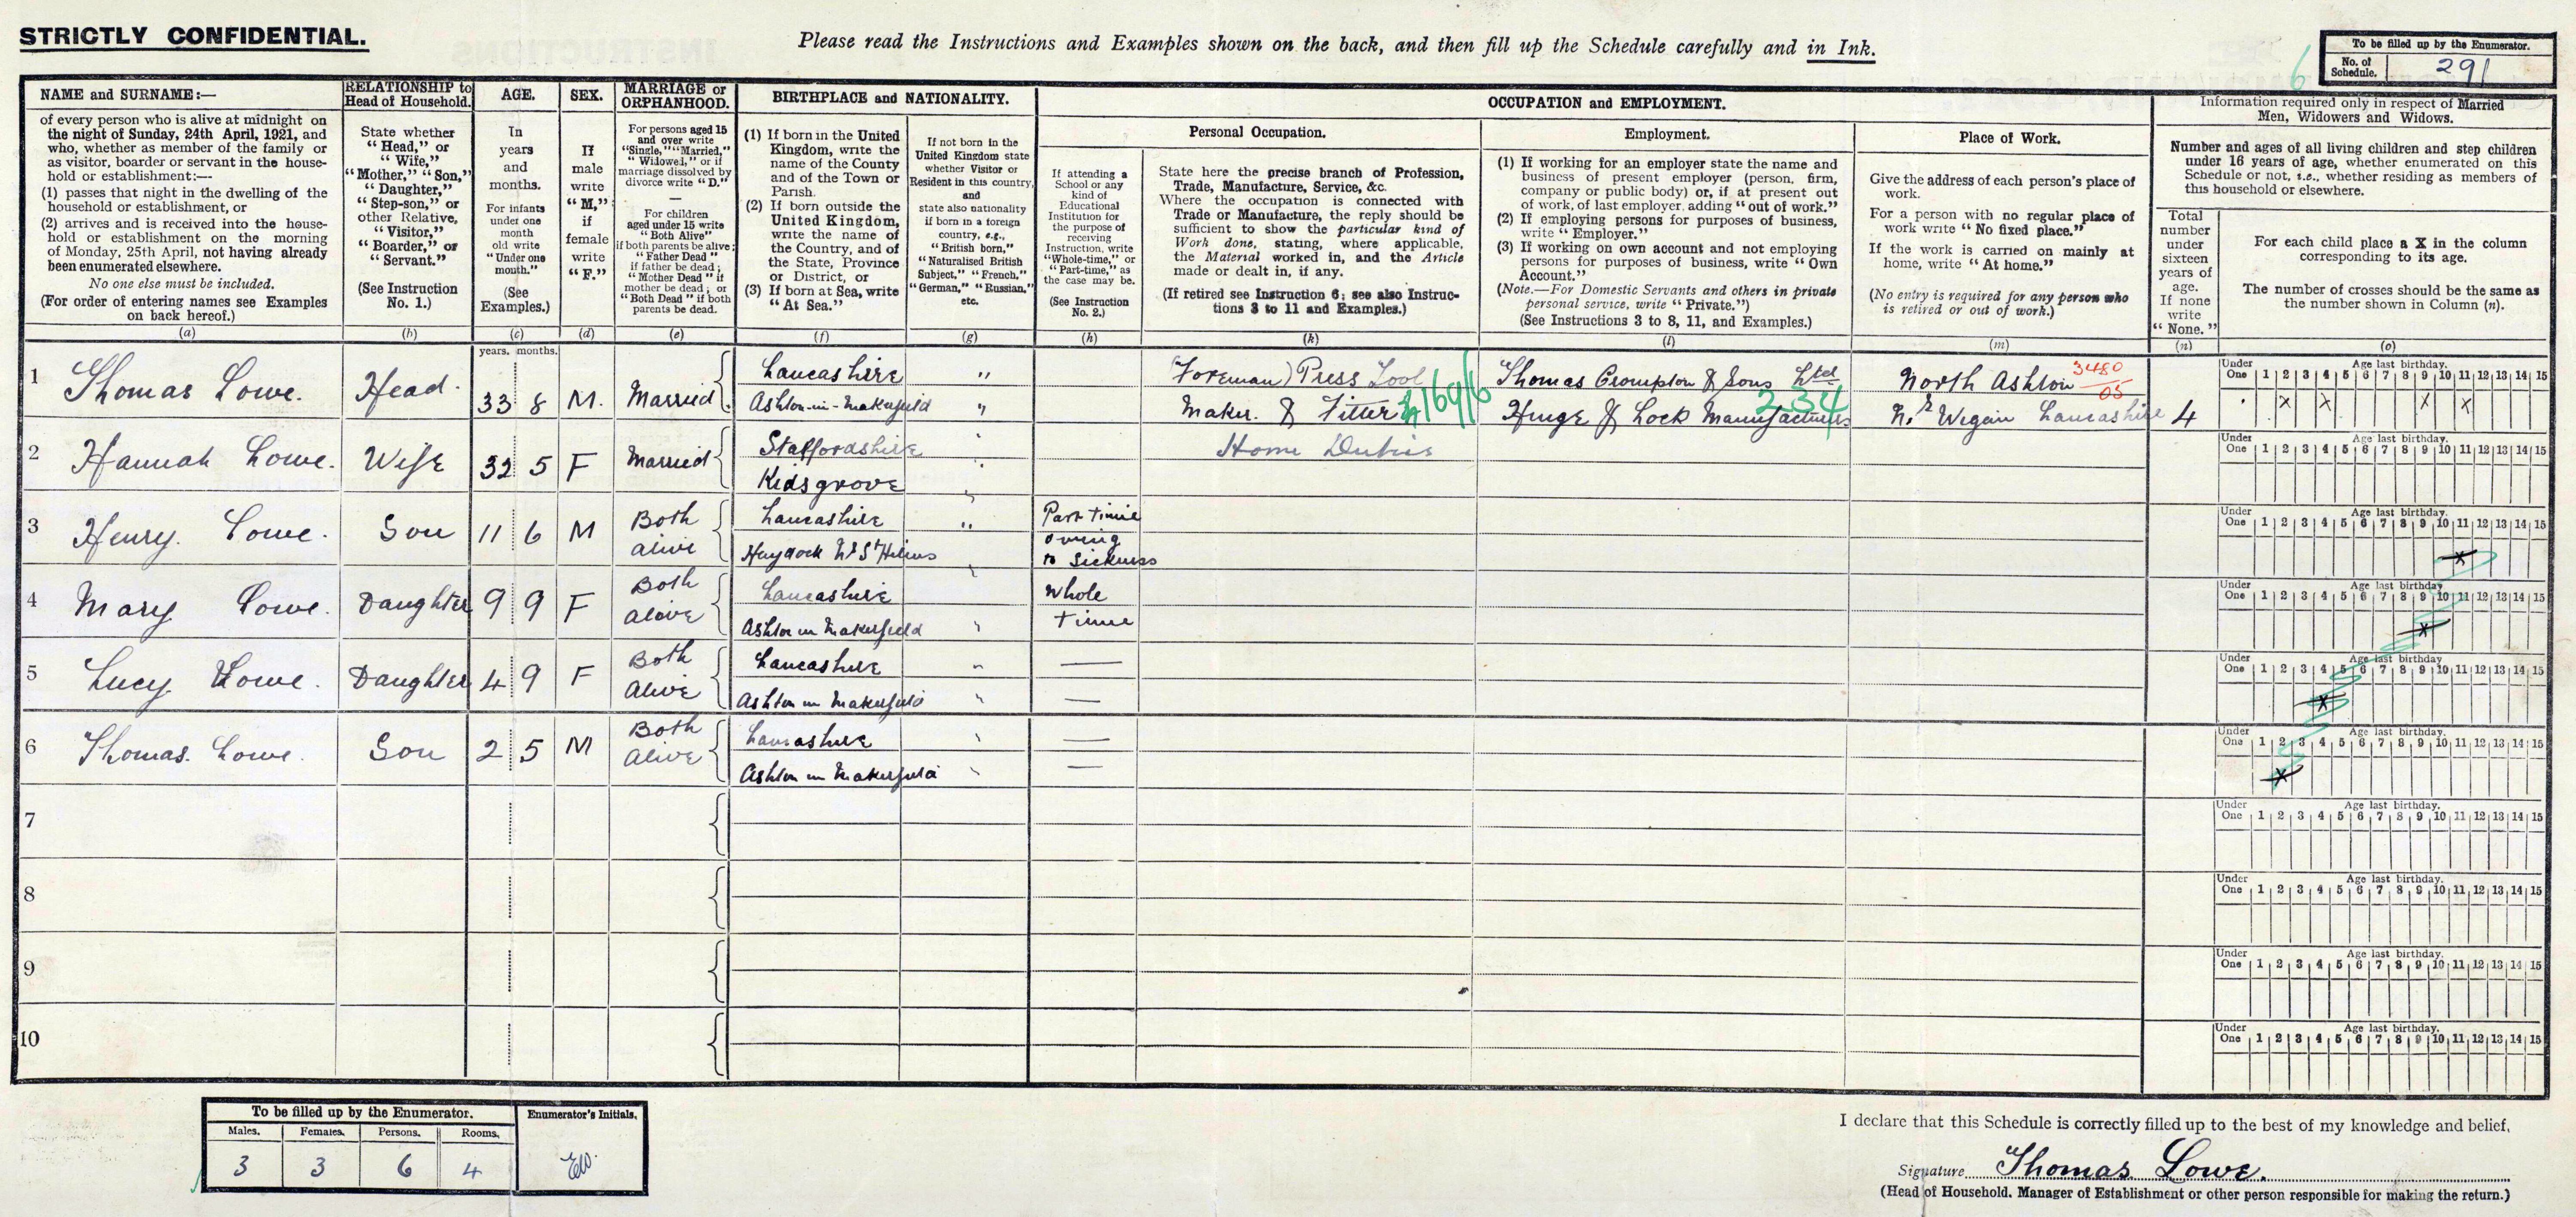 STRICTLY CONFIDENTIAL.
Please read the Instructions and Examples shown on the back, and then fill up the Schedule carefully and in Ink.
To be filled up by the Enumerator.
No. of Schedule. 291
6
NAME and SURNAME:—
of every person who is alive at midnight on
the night of Sunday, 24th April, 1921, and
who, whether as member of the family or
as visitor, boarder or servant in the house-
hold or establishment:—
(1) passes that night in the dwelling of the
household or establishment, or
(2) arrives and is received into the house-
hold or establishment on the morning
of Monday, 25th April, not having already
been enumerated elsewhere.
No one else must be included.
(For order of entering names see Examples
on back hereof.)
(a)
RELATIONSHIP to
Head of Household.
State whether
"Head," or
"Wife,"
"Mother," "Son,"
"Daughter,"
"Step-son," or
other Relative,
"Visitor,"
"Boarder," or
"Servant."
(See Instruction
No. 1.)
(b)
AGE.
In
years
and
months.
For infants
under one
month
old write
"Under one
month."
(See
Examples.)
(c)
SEX.
If
male
write
"M.";
if
female
write
"F."
(d)
MARRIAGE or
ORPHANHOOD.
For persons aged 15
and over write
"Single," "Married,"
"Widowed," or if
marriage dissolved by
divorce write "D."
—
For children
aged under 15 write
"Both Alive"
if both parents be alive;
"Father Dead"
if father be dead;
"Mother Dead" if
mother be dead; or
"Both Dead" if both
parents be dead.
(e)
BIRTHPLACE and NATIONALITY.
(1) If born in the United
Kingdom, write the
name of the County
and of the Town or
Parish.
(2) If born outside the
United Kingdom,
write the name of
the Country, and of
the State, Province
or District, or
(3) If born at Sea, write
"At Sea."
(f)
If not born in the
United Kingdom state
whether Visitor or
Resident in this country,
and
state also nationality
if born in a foreign
country, e.g.,
"British born,"
"Naturalised British
Subject," "French,"
"German," "Russian,"
etc.
(g)
OCCUPATION and EMPLOYMENT.
If attending a
School or any
kind of
Educational
Institution for
the purpose of
receiving
Instruction, write
"Whole-time," or
"Part-time," as
the case may be.
(See Instruction
No. 2.)
(h)
Personal Occupation.
State here the precise branch of Profession,
Trade, Manufacture, Service, &c.
Where the occupation is connected with
Trade or Manufacture, the reply should be
sufficient to show the particular kind of
Work done, stating, where applicable,
the Material worked in, and the Article
made or dealt in, if any.
(If retired see Instruction 6; see also Instruc-
tions 3 to 11 and Examples.)
(k)
Employment.
(1) If working for an employer state the name and
business of present employer (person, firm,
company or public body) or, if at present out
of work, of last employer, adding "out of work."
(2) If employing persons for purposes of business,
write "Employer."
(3) If working on own account and not employing
persons for purposes of business, write "Own
Account."
(Note.—For Domestic Servants and others in private
personal service, write "Private.")
(See Instructions 3 to 8, 11, and Examples.)
(l)
Place of Work.
Give the address of each person's place of
work.
For a person with no regular place of
work write "No fixed place."
If the work is carried on mainly at
home, write "At home."
(No entry is required for any person who
is retired or out of work.)
(m)
Information required only in respect of Married
Men, Widowers and Widows.
Number and ages of all living children and step children
under 16 years of age, whether enumerated on this
Schedule or not, i.e., whether residing as members of
this household or elsewhere.
Total
number
under
sixteen
years of
age.
If none
write
"None."
(n)
For each child place a X in the column
corresponding to its age.
The number of crosses should be the same as
the number shown in Column (n).
(o)
years. months.
1 Thomas Lowe. Head. 33 8 M. Married Lancashire " (Foreman) Press Tool Thomas Crompton & Sons Ltd North Ashton 3480
Ashton-in-Makerfield " Maker. & Fitter Hinge & Lock Manufacturers 234 Nr Wigan Lancashire 05 4
Under One Age last birthday. 1 2 3 4 5 6 7 8 9 10 11 12 13 14 15
X X X X
2 Hannah Lowe. Wife 32 5 F Married Staffordshire " Home Duties
Kidsgrove "
Under One Age last birthday. 1 2 3 4 5 6 7 8 9 10 11 12 13 14 15
3 Henry. Lowe. Son 11 6 M Both alive Lancashire " Part time
Haydock Nr St Helens " owing
to Sickness
Under One Age last birthday. 1 2 3 4 5 6 7 8 9 10 11 12 13 14 15
X
4 Mary Lowe. Daughter 9 9 F Both alive Lancashire Whole
Ashton in Makerfield " time
Under One Age last birthday. 1 2 3 4 5 6 7 8 9 10 11 12 13 14 15
X
5 Lucy Lowe. Daughter 4 9 F Both Alive Lancashire " —
Ashton in Makerfield " —
Under One Age last birthday. 1 2 3 4 5 6 7 8 9 10 11 12 13 14 15
X
6 Thomas. Lowe. Son 2 5 M Both Alive Lancashire " —
Ashton in Makerfield " —
Under One Age last birthday. 1 2 3 4 5 6 7 8 9 10 11 12 13 14 15
X
7
Under One Age last birthday. 1 2 3 4 5 6 7 8 9 10 11 12 13 14 15
8
Under One Age last birthday. 1 2 3 4 5 6 7 8 9 10 11 12 13 14 15
9
Under One Age last birthday. 1 2 3 4 5 6 7 8 9 10 11 12 13 14 15
10
Under One Age last birthday. 1 2 3 4 5 6 7 8 9 10 11 12 13 14 15
To be filled up by the Enumerator.
Males. Females. Persons. Rooms.
3 3 6 4
Enumerator's Initials.
EW.
I declare that this Schedule is correctly filled up to the best of my knowledge and belief,
Signature Thomas Lowe.
(Head of Household, Manager of Establishment or other person responsible for making the return.)